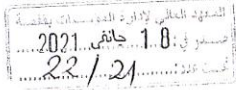 المعهد العالي لإدارة المؤسسات بقفصة
صدر في: 18 جانفي 2021
تحت عدد: 22/21